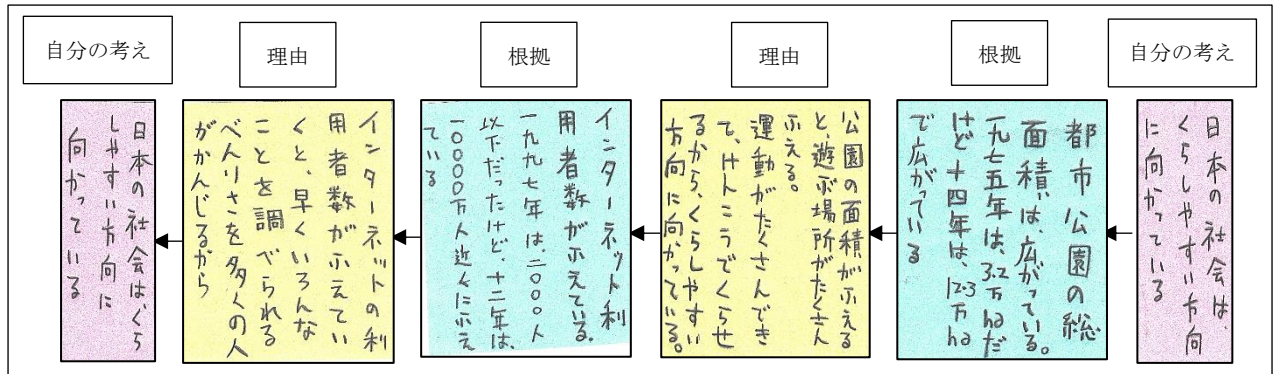 自分の考え
日本の社会は、
くらしやすい方向
に向かっている
根拠
都市公園の総
面積は、広がっている。
一九七五年は、3.2万haだ
けど十四年は、12.3万ha
で広がっている
理由
公園の面積がふえる
と、遊ぶ場所がたくさん
ふえる。
運動がたくさんでき
て、けんこうでくらせ
るから、くらしやすい
方向に向かっている。
根拠
インターネット利
用者数がふえている。
一九九七年は、二〇〇〇人
以下だったけど、十二年は、
一〇〇〇〇万人近くにふえ
ている
理由
インターネットの利
用者数がふえてい
くと、早くいろんな
ことを調べられる
べんりさを多くの人
がかんじるから
自分の考え
日本の社会は、くら
しやすい方向に
向かっている